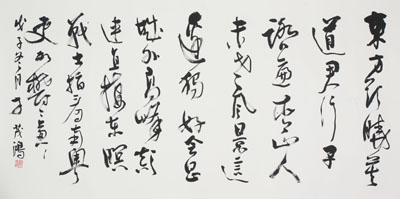 東方欲曉莫
道君行早
踏遍青山人
未老風景這
邊獨好會昌
城外高峰顛
連直接東溟
戰士指看南粵
更加鬱々葱々
戊子冬月